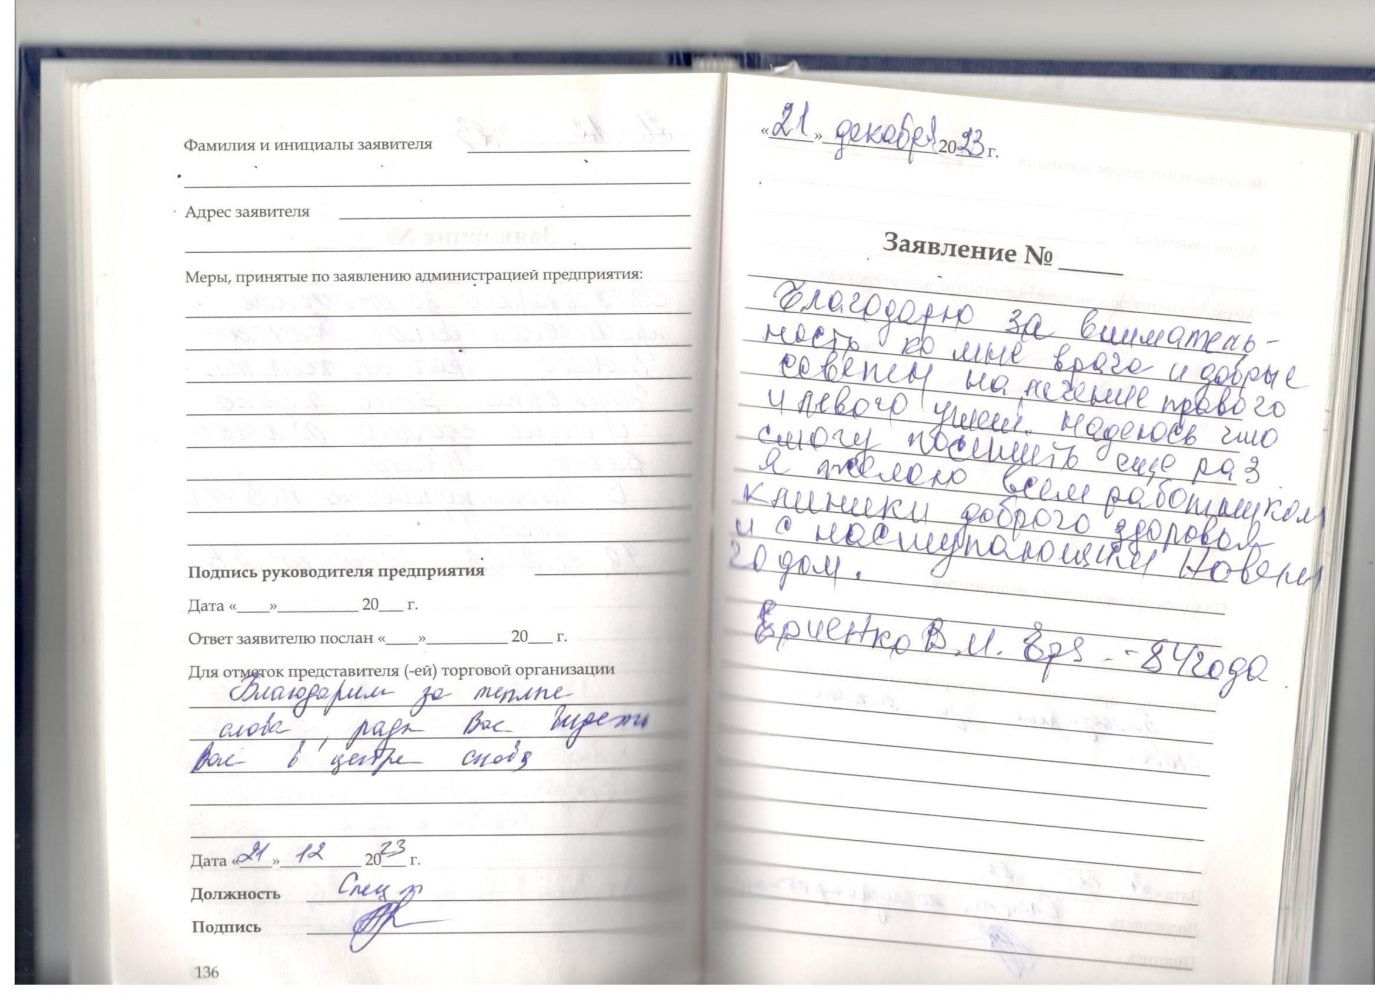 Фамилия и инициалы заявителя
Адрес заявителя
Меры, принятые по заявлению администрацией предприятия:
Подпись руководителя предприятия
Дата «____»__________ 20___ г.
Ответ заявителю послан «____»__________ 20___ г.
Для отметок представителя (-ей) торговой организации
Благодарим за теплые
слова, рады Вас видеть
Вас в центре снова
Дата «21» 12 2023 г.
Должность Спец
Подпись
136
«21» декабря 2023 г.
Заявление № ____
Благодарю за вниматель-
ность ко мне врача и добрые
советы на лечение правого
и левого ушей. Надеюсь что
смогу посетить еще раз
Я желаю всем работникам
клиники доброго здоровья
и с наступающим Новым
годом.
В.И. - 84 года